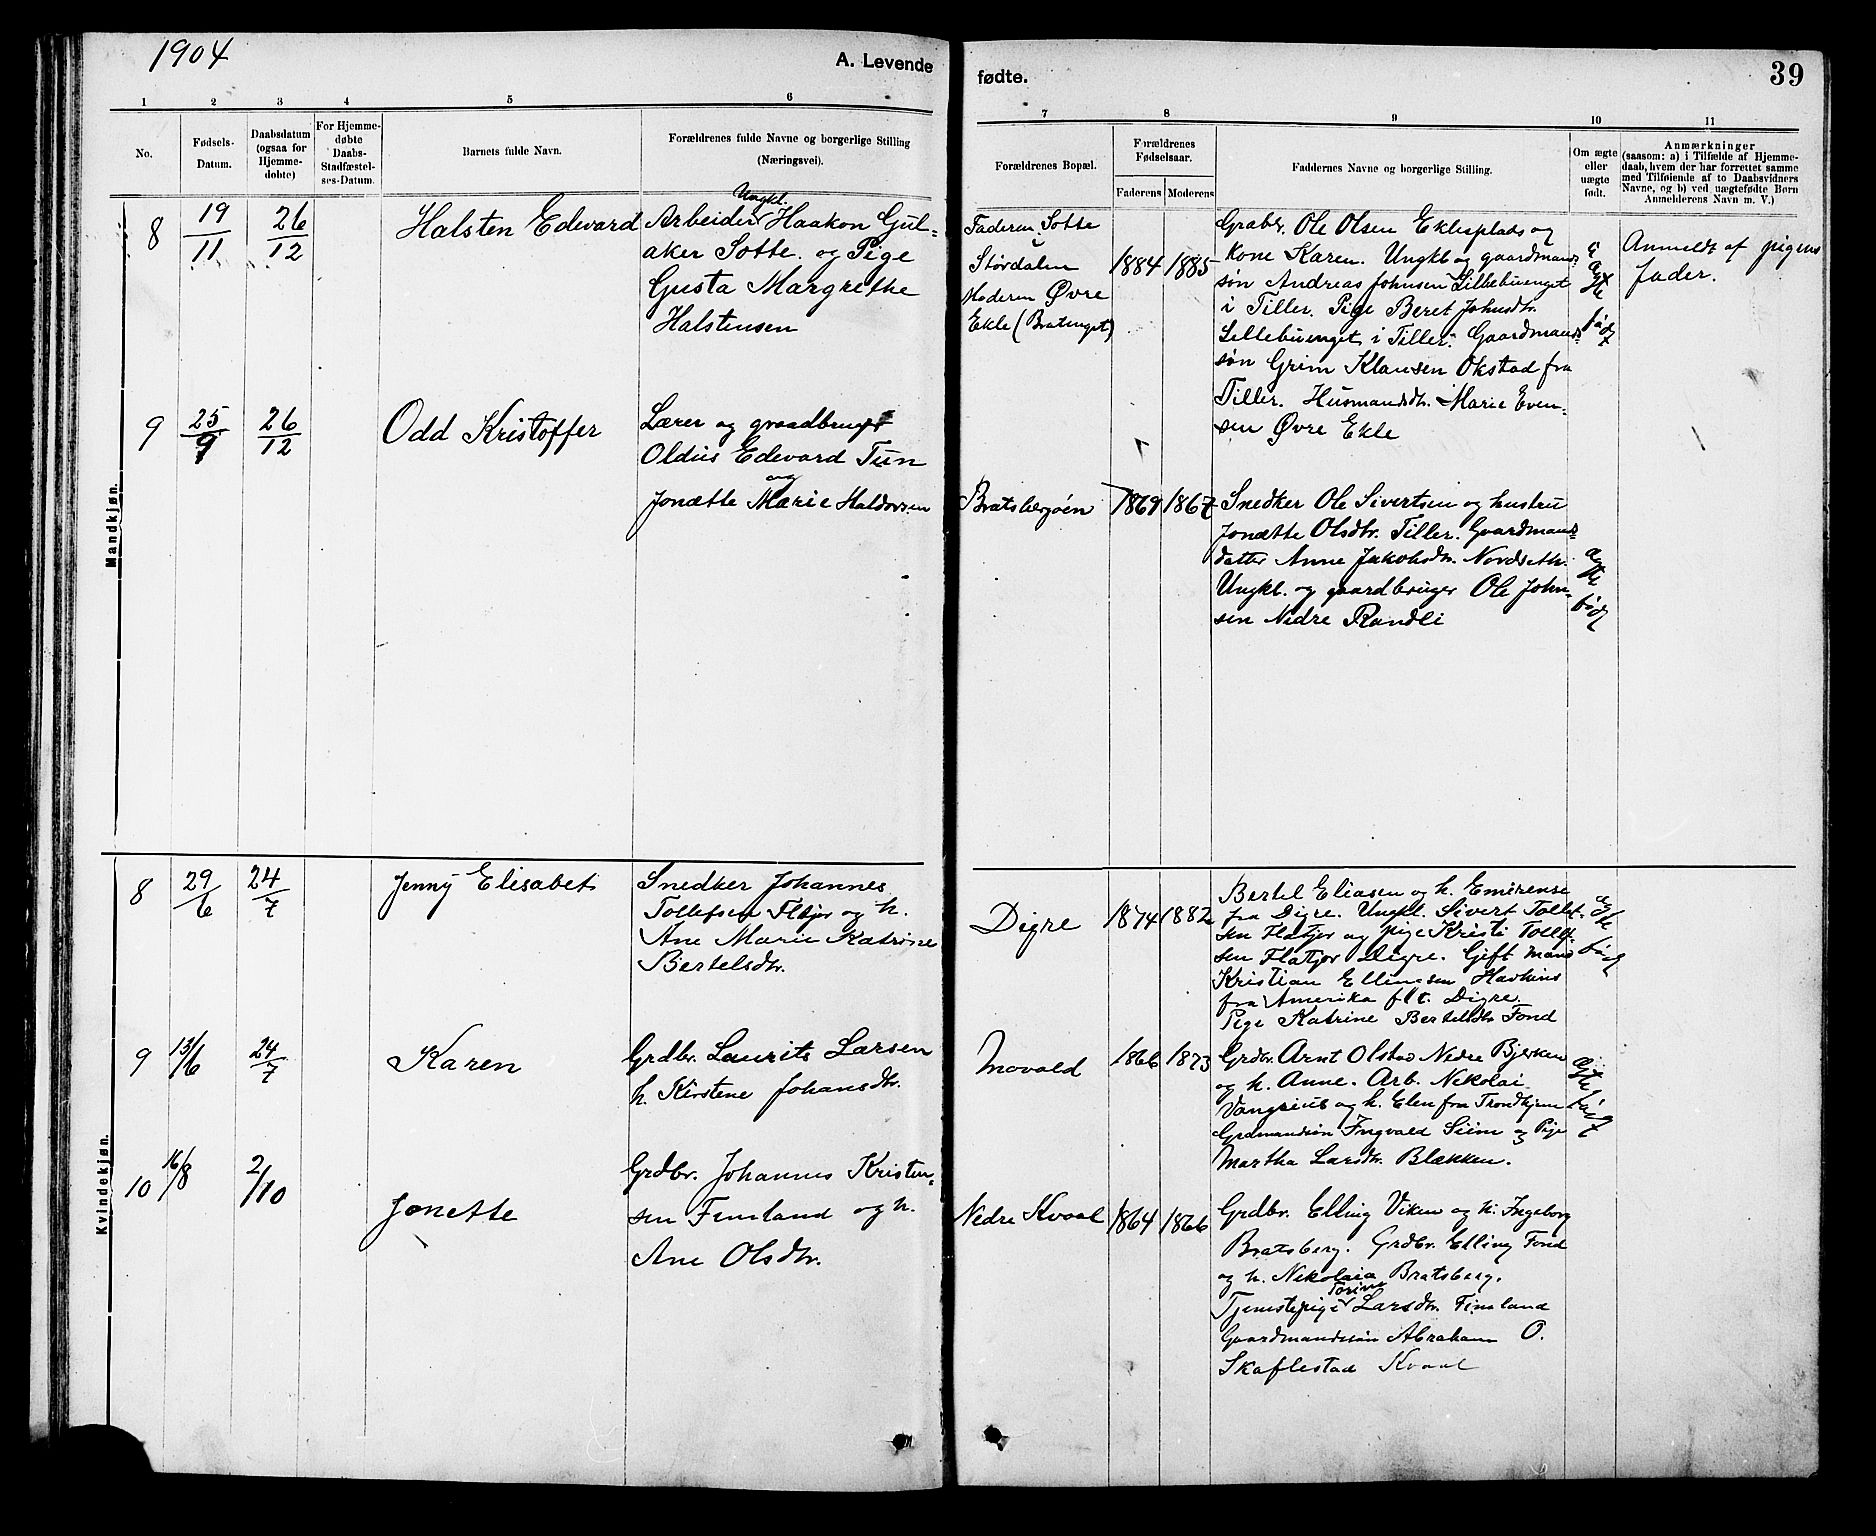 1904
A. Levende
fødte.
39
1 2 3 4 5 6 7 8 9 10 11
No.
Fødsels-
Datum.
Daabsdatum
(ogsaa for
Hjemme-
døbte)
For Hjemme-
døbte
Daabs-
Stadfæstel-
ses-Datum.
Barnets fulde Navn.
Forældrenes fulde Navne og borgerlige Stilling
(Næringsvei).
Forældrenes Bopæl.
Forældrenes
Fødselsaar.
Faderens Moderens
Faddernes Navne og borgerlige Stilling.
Om ægte
eller
uægte
født.
Anmærkninger
(saasom: a) i Tilfælde af Hjemme-
daab, hvem der har forrettet samme
med Tilføiende af to Daabsvidners
Navne, og b) ved uægtefødte Børn
Anmelderens Navn m. V.)
Mandkjøn.
8
19/11
26/12
Halsten Edevard
Ungkl.
Arbeider Haakon Gul-
aker Sotte. og Pige
Gusta Margrethe
Halstensen
Faderen Sotte
Størdalen
Moderen Øvre
Ekle (Bratenget)
1884 1885
Ole Olsen Eklesplads og
Kone Karen. Ungkl og gaardmands
søn Andreas Johnsen Lillebuenget
i Tiller. Pige Beret Johnsdtr.
Lillebuenget i Tiller. Gaardmands-
søn Grim Klausen Okstad fra
Tiller. Husmandsdtr. Marie Even-
sen Øvre Ekle
uægte
født
Anmeldt af pigens
fader.
9
25/9
26/12
Odd Kristoffer
Lærer og graadbruger
Oldus Edevard Tun
og
Jonætte Marie Haldorsen
Bratsbergøen
1869 1867
Snedker Ole Sivertsen og hustru
Jonætte Olsdtr. Tiller. Gaardmands-
datter Anne Jakobsdtr. Nordseth.
Ungkl. og gaardbruger Ole John-
sen Nedre Randli
ægte
født
Kvindekjøn.
8
29/6
24/7
Jenny Elisabet
Snedker Johannes
Tollefsen Flatjor og h.
Ane Marie Katrine
Bertelsdtr.
Digre
1874 1882
Bertel Eliasen og h. Emerense
fra Digre. Ungkl. Sivert Tollef-
sen Flatjor og pige Kristi Tollef-
sen Flatjor Digre. Gift mand
Kristian Ellingsen
fra Amerika f.t. Digre.
Pige Katrine Bertelsdtr Fond
ægte
født
9
13/6
24/7
Karen
Grdbr. Laurits Larsen
h. Kirstene Johansdtr.
Movald
1866 1873
Grdbr. Arnt Nedre Bjerken
og h. Anne. Arb. Nekolai
Vangsius og h. Elen fra Trondhjem
Grdmandsøn Ingvald Siem og Pige
Martha Larsdtr. Blækken.
ægte
født
10
16/8
2/10
Jonette
Grdbr. Johannes Kristen-
sen Femland og h.
Ane Olsdtr.
Nedre Kvaal
1864 1866
Grdbr. Elling Viken og h. Ingeborg
Bratsberg. Grdbr. Elling Fond
og h. Nekolaia Bratsberg.
Torine
Tjenstepige Larsdtr. Fimland
Gaardmandssøn Abraham O.
Skaflestad Kvaal